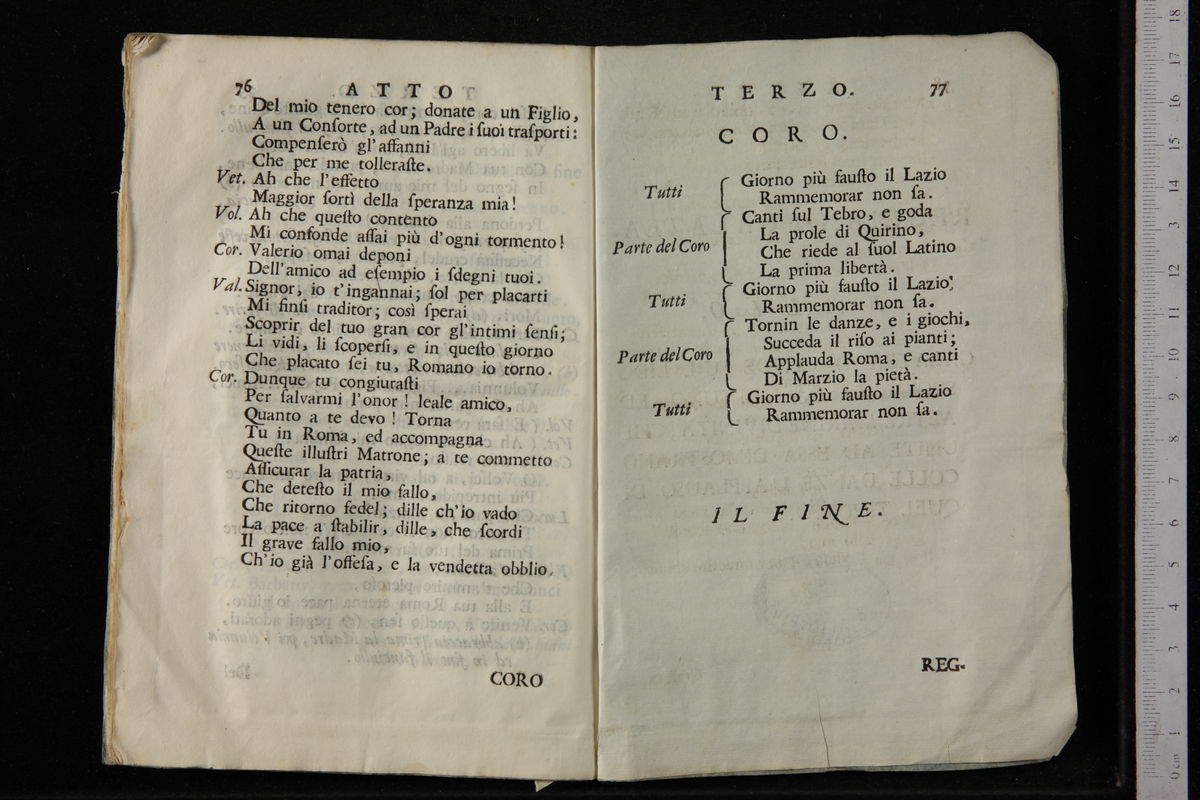 76 ATTO
Del mio tenero cor; donate a un Figlio,
A un Conſorte, ad un Padre i ſuoi traſporti:
Compenſerò gl'affanni
Che per me tolleraſte.
Vet. Ah che l'effetto
Maggior ſortì della ſperanza mia!
Vol. Ah che queſto contento
Mi confonde aſſai più d'ogni tormento!
Cor. Valerio omai deponi
Dell'amico ad eſempio i ſdegni tuoi.
Val. Signor, io t'ingannai; ſol per placarti
Mi finſi traditor; così ſperai
Scoprir del tuo gran cor gl'intimi ſenſi;
Li vidi, li ſcoperſi, e in queſto giorno
Che placato ſei tu, Romano io torno.
Cor. Dunque tu congiuraſti
Per ſalvarmi l'onor! leale amico,
Quanto a te devo! Torna
Tu in Roma, ed accompagna
Queſte illuſtri Matrone; a te commetto
Aſſicurar la patria,
Che deteſto il mio fallo,
Che ritorno fedel; dille ch'io vado
La pace a ſtabilir, dille, che ſcordi
Il grave fallo mio,
Ch'io già l'offeſa, e la vendetta obblio.
CORO
TERZO. 77
CORO.
Tutti Giorno più fauſto il Lazio
Rammemorar non ſa.
Canti ſul Tebro, e goda
Parte del Coro La prole di Quirino,
Che riede al ſuol Latino
La prima libertà.
Tutti Giorno più fauſto il Lazio
Rammemorar non ſa.
Tornin le danze, e i giochi,
Succeda il riſo ai pianti;
Parte del Coro Applauda Roma, e canti
Di Marzio la pietà.
Tutti Giorno più fauſto il Lazio
Rammemorar non ſa.
IL FINE.
REG-